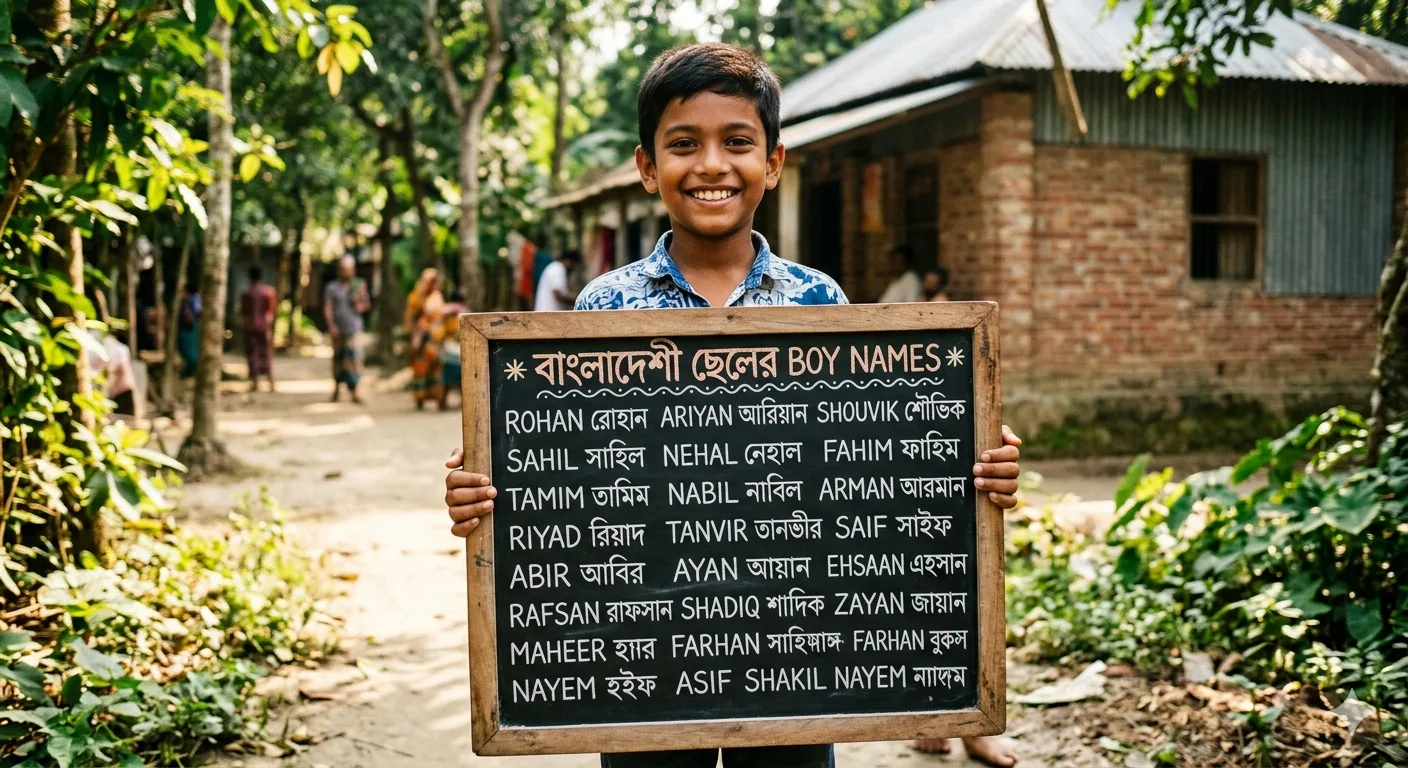 * বাংলাদেশী ছেলের BOY NAMES *
ROHAN রোহান ARIYAN আরিয়ান SHOUVIK শৌভিক
SAHIL সাহিল NEHAL নেহাল FAHIM ফাহিম
TAMIM তামিম NABIL নাবিল ARMAN আরমান
RIYAD রিয়াদ TANVIR তানভীর SAIF সাইফ
ABIR আবির AYAN আয়ান EHSAAN এহসান
RAFSAN রাফসান SHADIQ শাদিক ZAYAN জায়ান
MAHEER FARHAN FARHAN
NAYEM হইফ ASIF SHAKIL NAYEM